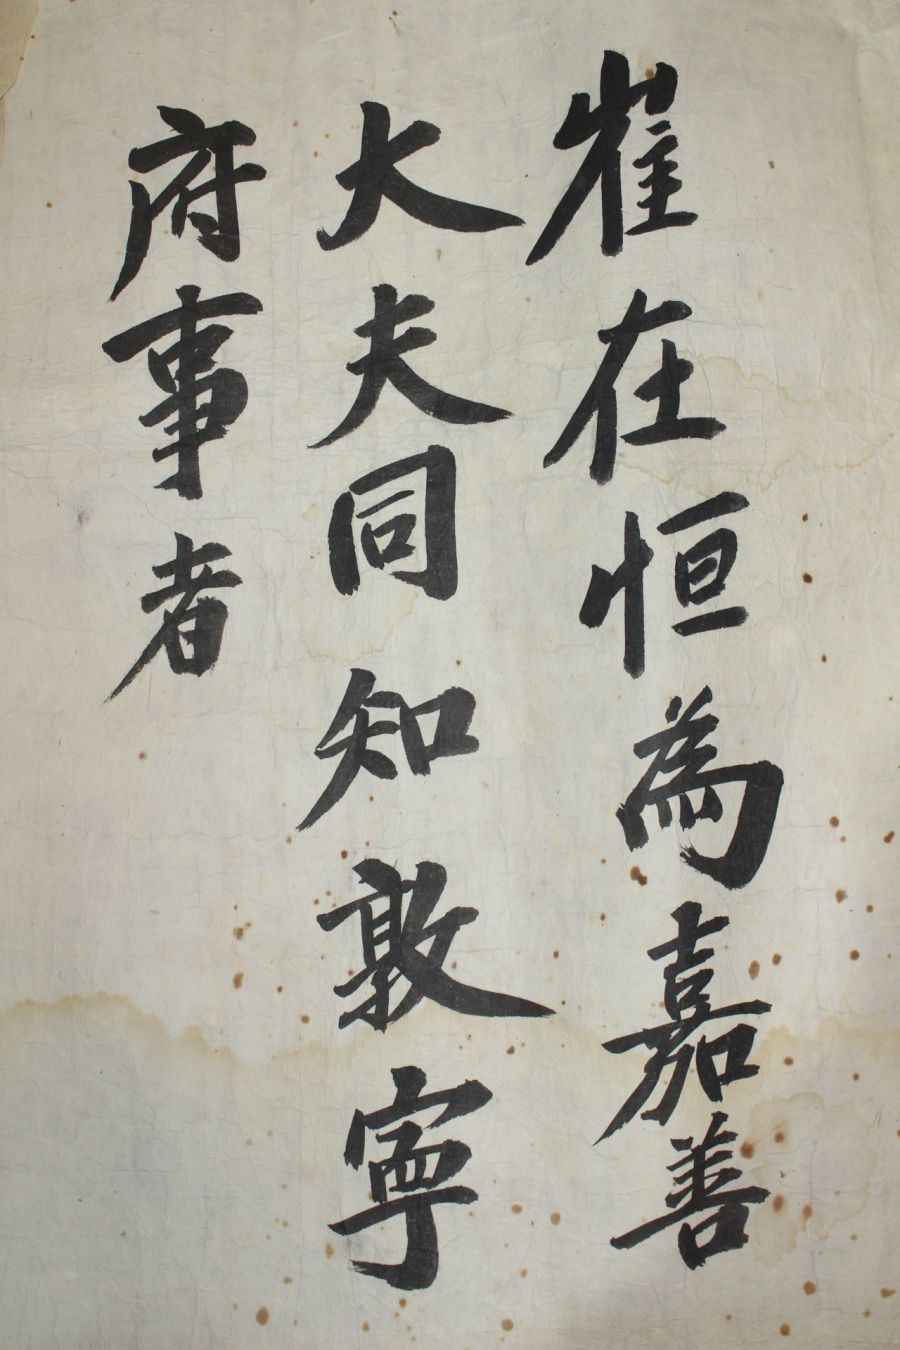 崔在恒為嘉善
大夫同知敦寧
府事者